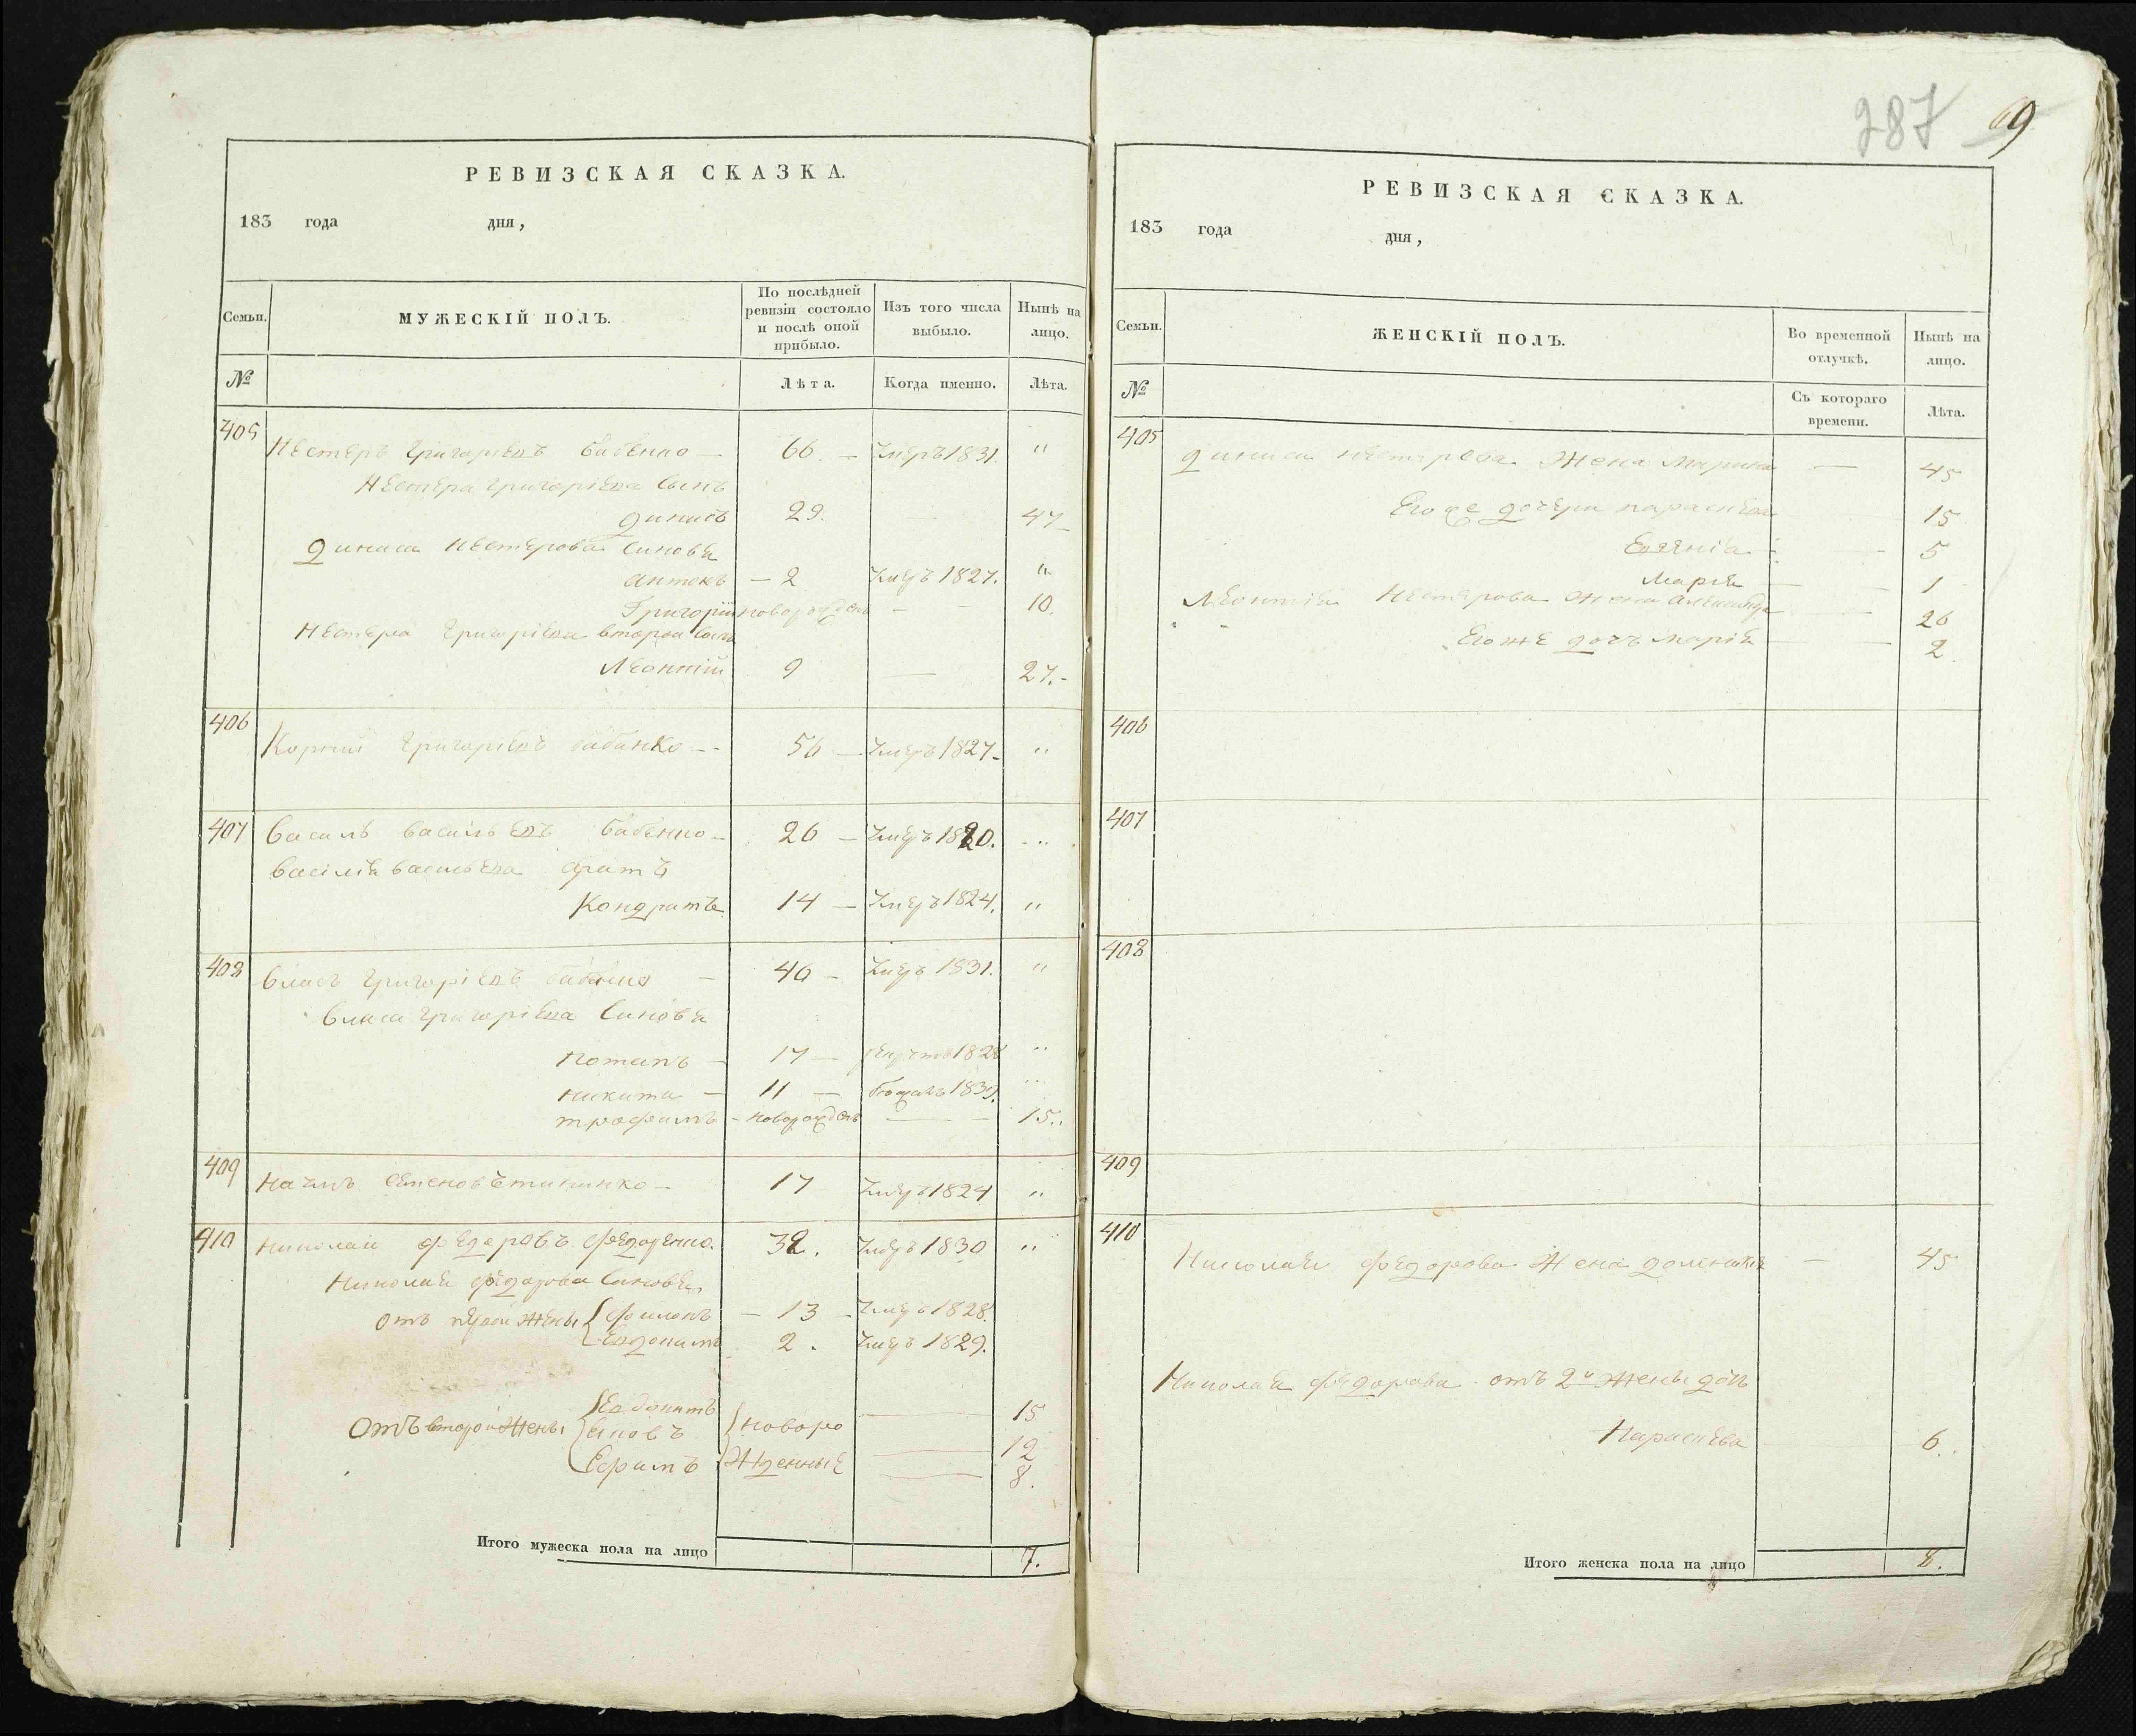 287 69
РЕВИЗСКАЯ СКАЗКА.
183 года дня,
Семьи. МУЖЕСКІЙ ПОЛЪ. По послѣдней ревизіи состояло и послѣ оной прибыло. Изъ того числа выбыло. Нынѣ на лицо.
№ Лѣта. Когда именно. Лѣта.
405 Нестеръ Григоріевъ Бабенко — 66. — Умеръ 1831. "
Нестера Григоріева Сынъ
Динисъ 29. — 47
Диниса Нестерова Синовя
Антонъ — 2 Умеръ 1827. "
Григорій новорожденъ — 10.
Нестера Григоріева второй Сынъ
Леонтій 9 — 27.-
406 Корній Григоріевъ Бабанко -- 56 — Умеръ 1827- "
407 Василь Васильевъ Бабенко — 26 — Умеръ 1820. "
Василія Васильева братъ
Кондратъ 14 — Умеръ 1824. "
408 Власъ Григоріевъ — 46 — Умеръ 1831. "
Власа Григоріева Синовя
Потапъ — 17 — 1828 "
Никита — 11 — "
Трофимъ — новорожденъ — 15..
409 Наумъ Семеновъ 17 Умеръ 1824 "
410 Николай Федоровъ Федоренко. 32. Умеръ 1830 "
Николая Федорова Синовя
отъ первой Жены { Филонъ — 13 — Умеръ 1828.
Евдокимъ 2. Умеръ 1829.
{ Евдокимъ 15
Отъ второй Жены { { новоро 12
{ Ефимъ { Жденные 8.
Итого мужеска пола на лицо 7.
РЕВИЗСКАЯ СКАЗКА.
183 года дня,
Семьи. ЖЕНСКІЙ ПОЛЪ. Во временной отлучкѣ. Нынѣ на лицо.
№ Съ котораго времени. Лѣта.
405 Диниса Нестерова Жена Марина — 45
Егоже дочери Параскева 15
Евгенія — 5
Марія — 1
Леонтія Нестерова Жена 26
Егоже дочъ Марія — 2.
406
407
408
409
410 Николая Федорова Жена — 45
Николая Федорова отъ 2й Жены дочъ
Параскева 6.
Итого женска пола на лицо 8.